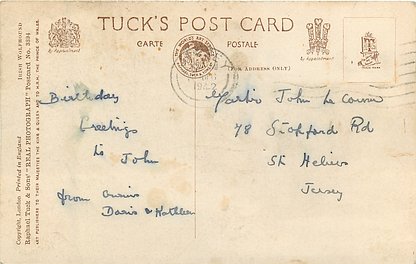 TUCK'S POST CARD
CARTE POSTALE
(FOR ADDRESS ONLY)
By Appointment
By Appointment
IRISH WOLFHOUND
Copyright. London. Printed in England
Raphael Tuck & Sons' "REAL PHOTOGRAPH" Postcard No. 3394
ART PUBLISHERS TO THEIR MAJESTIES THE KING & QUEEN AND TO H.R.H. THE PRINCE OF WALES.
Birthday
Greetings
to John
from
Doris & Kathleen
John Le
78 Stopford Rd
St Heliers
Jersey